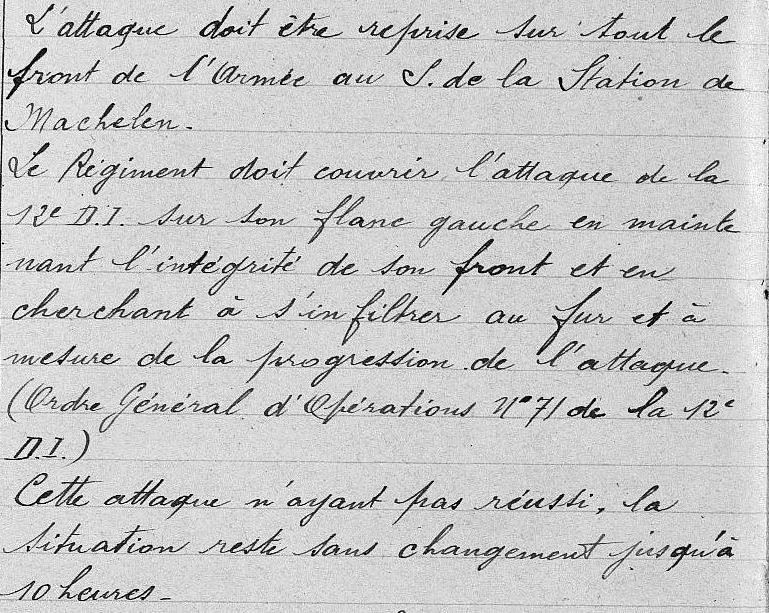 L'attaque doit être reprise sur tout le
front de l'Armée au S. de la Station de
Machelen.
Le Régiment doit couvrir l'attaque de la
12e D.I. sur son flanc gauche en mainte
nant l'intégrité de son front et en
cherchant à s'infiltrer au fur et à
mesure de la progression de l'attaque.
(Ordre Général d'Opérations N°71 de la 12e
D.I.)
Cette attaque n'ayant pas réussi, la
situation reste sans changement jusqu'à
10 heures -